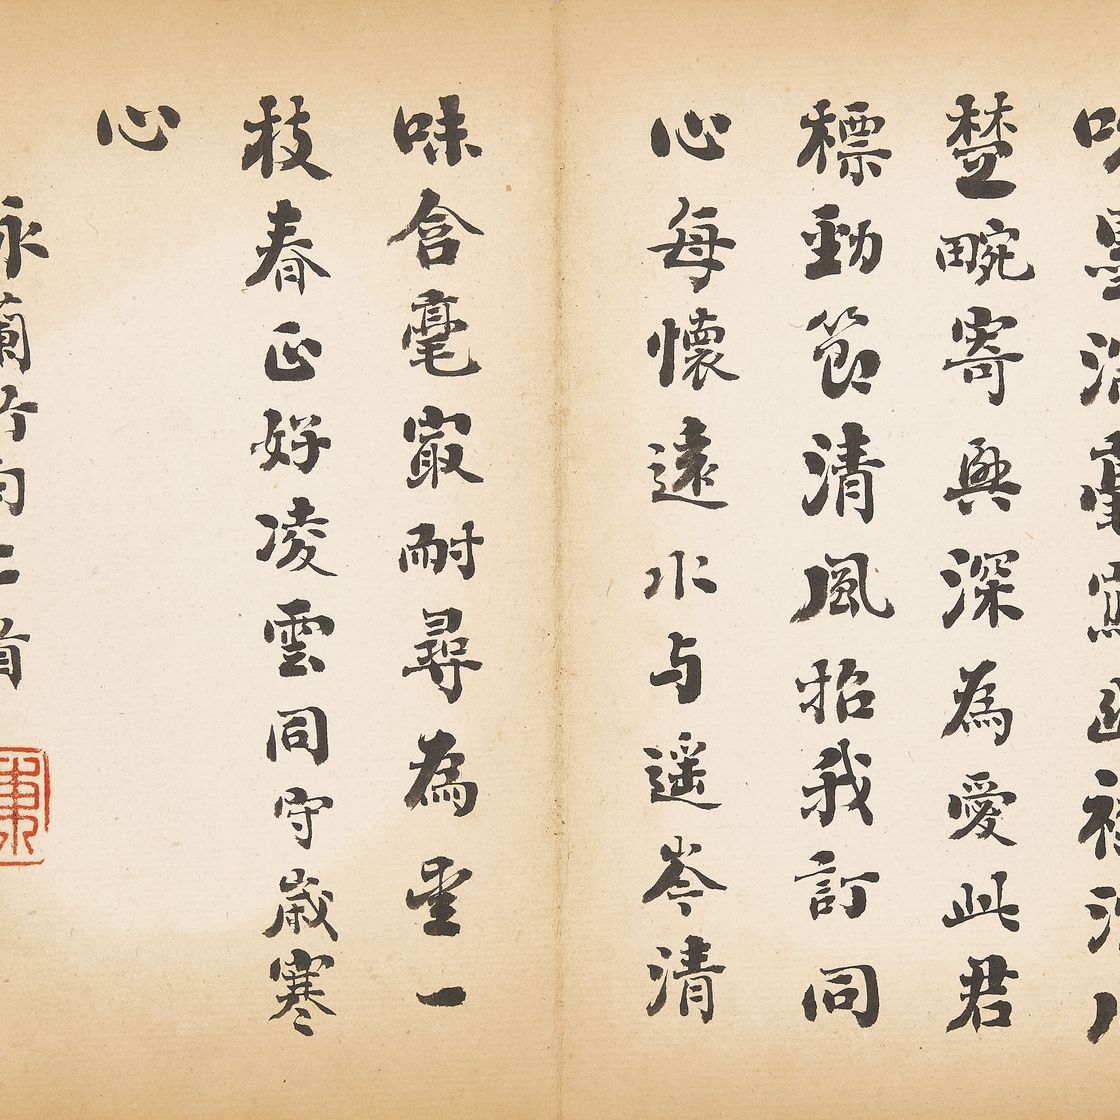 楚畹寄興深為愛此君
標動節清風招我訂同
心每懷遠水与遥岑清
味含毫寂耐尋為圼一
枝春正好凌雲同守歲寒
心
詠蘭竹
二首